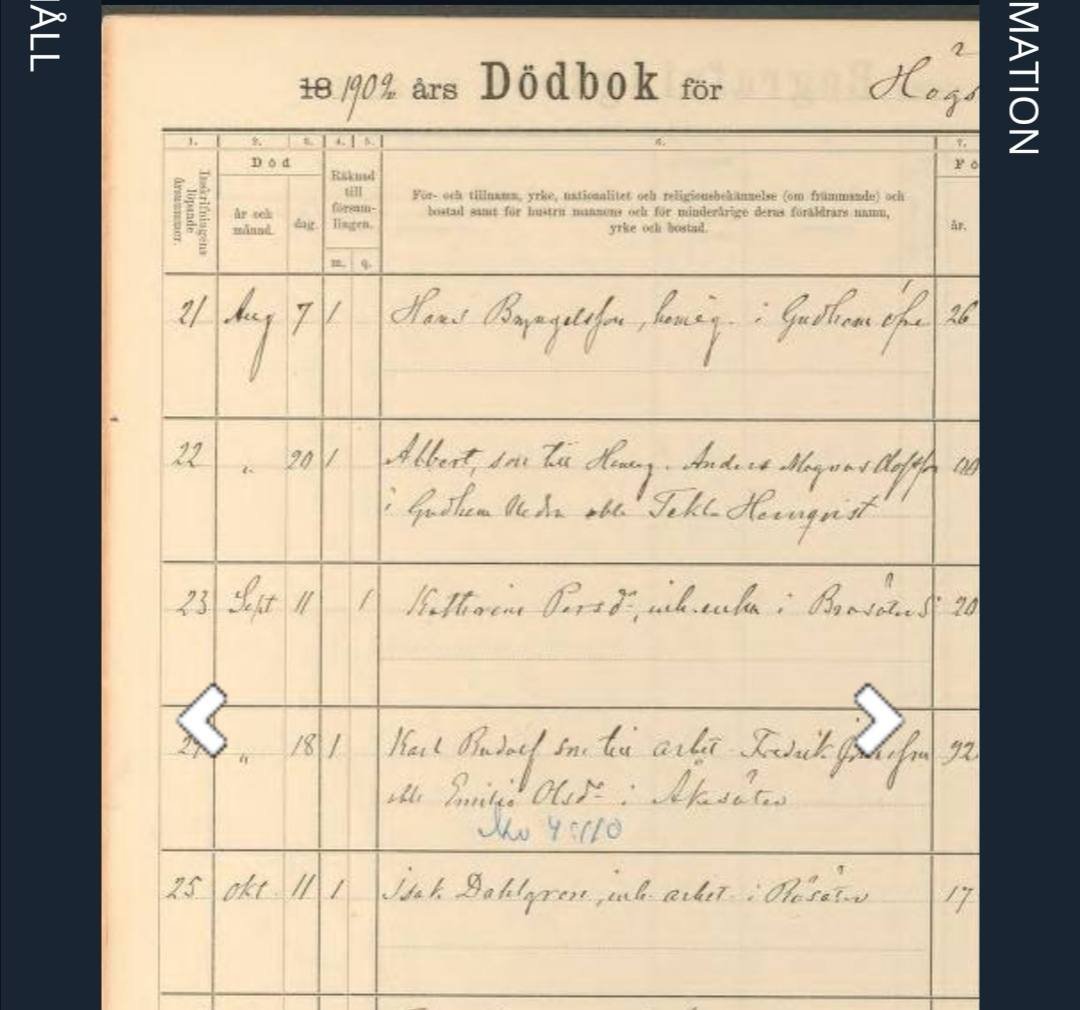 ÅLL
MATION
2
18 1902 års Dödbok för Högs
1. 2. 3. 4. 5. 6. 7.
Inskrifningens löpande årsnummer.
Död
år och månad.
dag.
Räknad till försam-lingen.
m. q.
För- och tillnamn, yrke, nationalitet och religionsbekännelse (om främmande) och
bostad samt för hustru mannens och för minderårige deras föräldrars namn,
yrke och bostad.
Fö
år.
21 Aug 7 1 Hans Bryngelsson, hemeg. i Gudhem öfre 26
22 " 20 1 Albert, son till Hemeg. Anders Magnus Olofsson 00
i Gudhem Nedra och Tekla Hernqvist
23 Sept 11 1 Katharina Persdr, inh. enka i 20
24 " 18 1 Karl Rudolf son till arbet. Fredrik 92
och Emilia Olsdr i Åkesäter
No
25 Okt 11 1 Isak Dahlgren, inh. arbet. i Rösäter 17